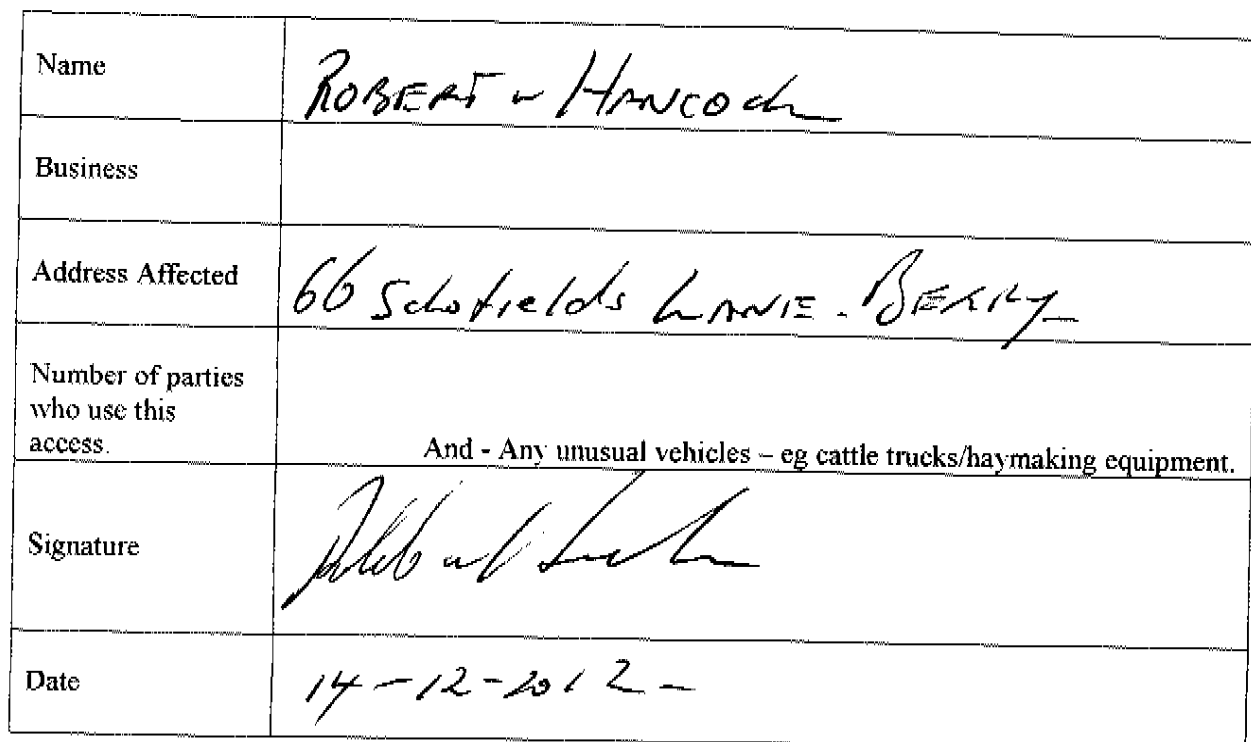 Name
ROBERT w HANCOCK
Business
Address Affected
66 Schofields LANE. BERRY
Number of parties
who use this
access.
And - Any unusual vehicles – eg cattle trucks/haymaking equipment.
Signature
Date
14-12-2012-